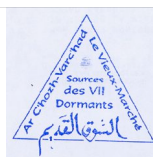 Ar C'hozh-Varc'had
Le Vieux-Marché
Sources
des VII
Dormants
السّوق القديم